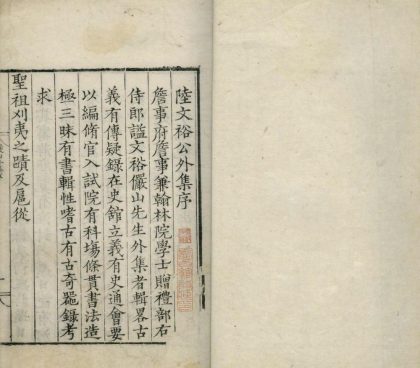 陸文裕公外集序
詹事府詹事兼翰林院學士贈禮部右
侍郎謚文裕儼山先生外集者輯畧古
義有傳疑錄在史舘立義有史通會要
以編脩官入試院有科塲條貫書法造
極三昧有書輯性嗜古有古奇噐錄考
求
聖祖刈夷之蹟及扈從